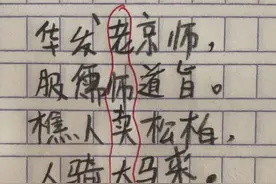 华发老京师，
服儒师道旨。
樵人卖松柏，
人骑大马来。